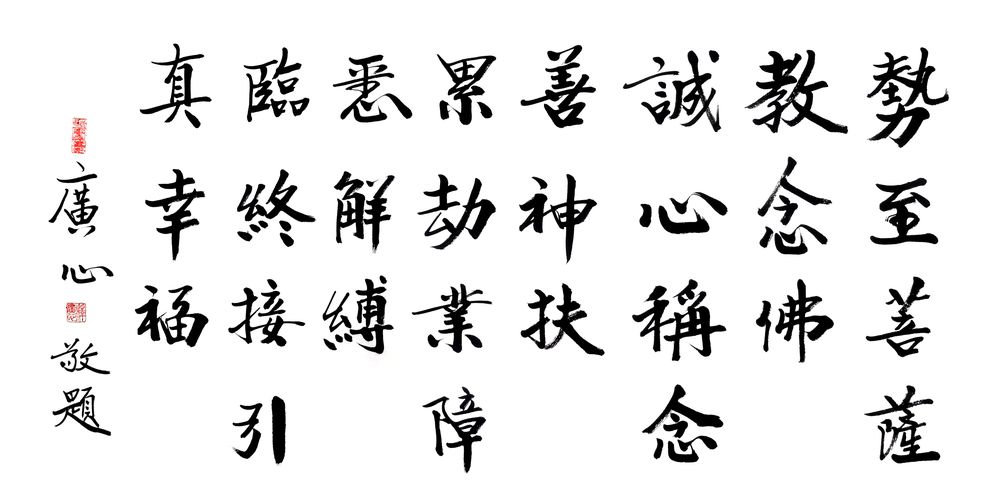 勢至菩薩
教念佛
誠心稱念
善神扶
累劫業障
悉解縛
臨終接引
真幸福
廣心敬題